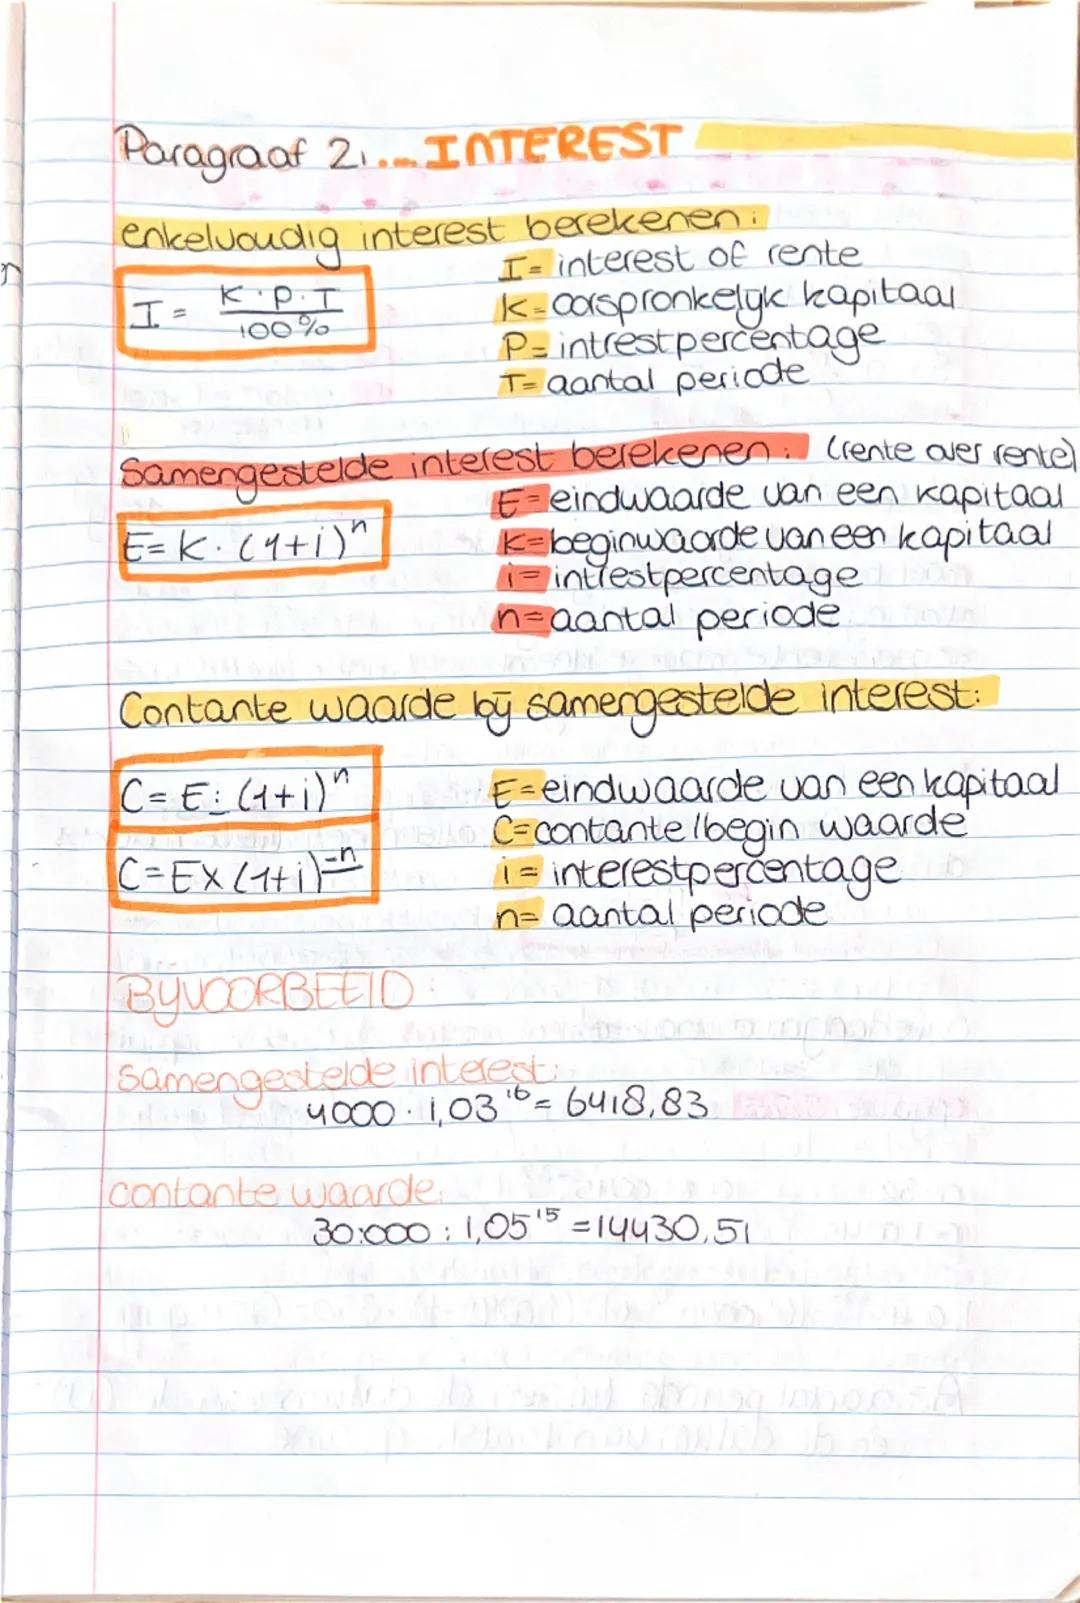 Paragraaf 2.... INTEREST
enkelvoudig interest berekenen:
I = K·P·T / 100%
I= interest of rente
K= oorspronkelyk kapitaal
P= intrestpercentage
T= aantal periode
Samengestelde interest berekenen: (rente over rente)
E= K·(1+i)ⁿ
E= eindwaarde van een kapitaal
K= beginwaarde van een kapitaal
i= intrestpercentage
n= aantal periode
Contante waarde bij samengestelde interest:
C= E : (1+i)ⁿ
C= E x (1+i)⁻ⁿ
E= eindwaarde van een kapitaal
C= contante/begin waarde
i= interestpercentage
n= aantal periode
BYVOORBEELD:
samengestelde interest:
4000 · 1,03¹⁶ = 6418,83
contante waarde:
30.000 : 1,05¹⁵ = 14430,51